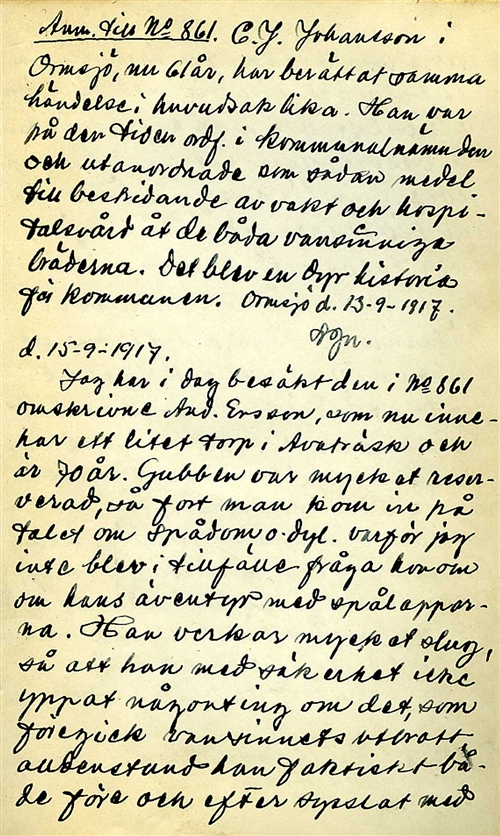 Anm. till No 861. C. J. Johansson i
Ormsjö, nu 61 år, har berättat samma
händelse i huvudsak lika. Han var
på den tiden ordf. i kommunalnämnden
och utanordnade som sådan medel
till bestridande av vakt och hospi-
talsvård åt de båda vansinniga
bröderna. Det blev en dyr historia
för kommunen. Ormsjö d. 13-9-1917.
d. 15-9-1917.
Jag har i dag besökt den i No 861
omskrivne And. Ersson, som nu inne-
har ett litet torp i Avaträsk och
är 70 år. Gubben var mycket reser-
verad, så fort man kom in på
talet om spådom o. dyl. varför jag
inte blev i tillfälle fråga honom
om hans äventyr med spålappar-
na. Han verkar mycket slug,
så att han med säkerhet icke
yppat någonting om det, som
föregick vansinnets utbrott
allenstund han faktiskt bå-
de före och efter sysslat med